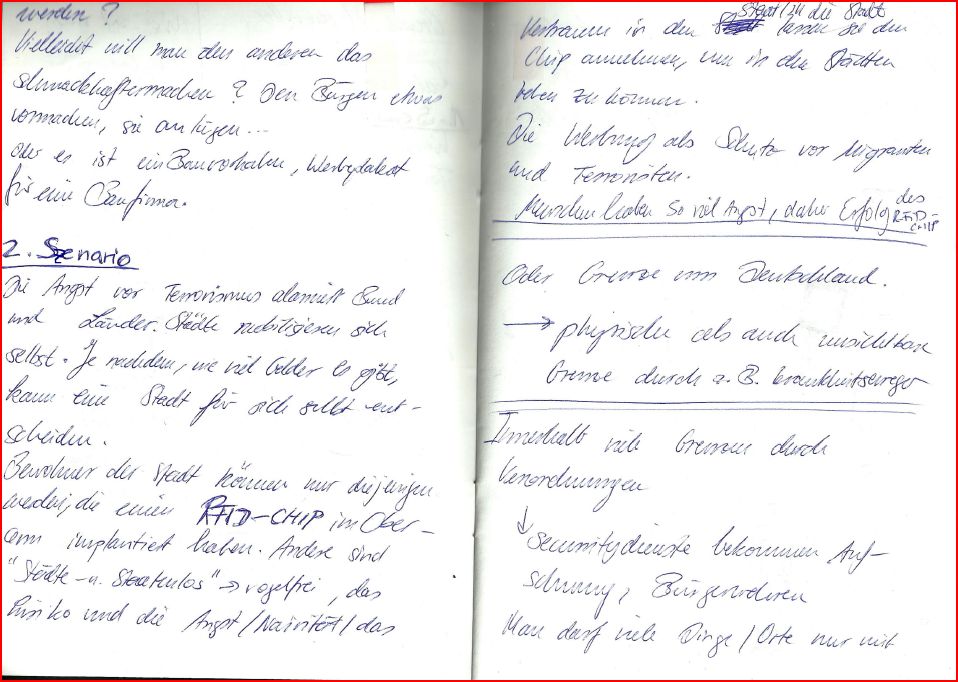 werden?
Vielleicht will man den anderen das
schmackhaftermachen? Den Bürgen etwas
vormachen, sie anlügen...
Oder es ist ein Bauvorhabn, Werbeplakat
für eine Baufirma.
2. Szenario
Die Angst vor Terrorismus alamiert Bund
und Länder. Städte mobilisieren sich
selbst. Je nachdem, wie viel Gelder es gibt,
kann eine Stadt für sich selbst ent-
scheiden.
Bewohner der Stadt können nur diejenigen
werden, die einen RFID-CHIP im Ober-
arm implantiert haben. Andere sind
"Städte- u. Staatenlos" -> vogelfrei, das
Risiko und die Angst/Naivität/das
Vertrauen in den Staat/in die Stadt lassen sie den
Chip annehmen, um in den Städten
leben zu können.
Die Werbung als Schutz vor Migranten
und Terroristen.
Menschen haben so viel Angst, daher Erfolg des RFID-CHIP
Oder Grenze um Deutschland.
→ physische als auch unsichtbare
Grenze durch z.B. Krankheitserreger
Innerhalb viele Grenzen durch
Verordnungen
↓ Securitydienste bekommen Auf-
schwung, Bürgerwehren
Man darf viele Dinge/Orte nur mit